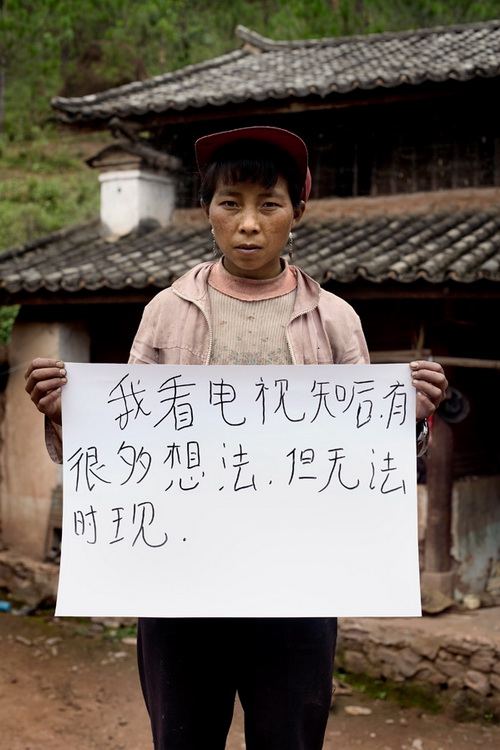 我看电视知后.有
很多想法.但无法
时现.